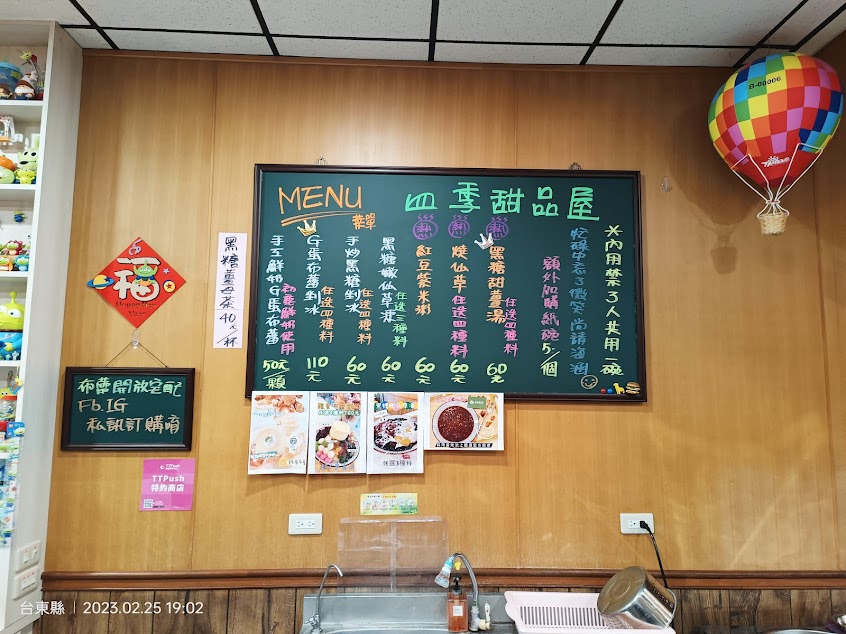 MENU
菜單
四季甜品屋
熱
熱
熱
※內用禁了人共用一碗
忙碌中忘了微笑 尚請海涵
額外加購紙碗5/個
黑糖甜薑湯 任送四種料 60元
燒仙草 任送四種料 60元
紅豆紫米粥 60元
黑糖嫩仙草凍 任送三種料 60元
手炒黑糖剉冰 任送四種料 60元
G蛋布蕾剉冰 任送四種料 110元
手工鮮奶G蛋布蕾 初鹿鮮奶使用 50元/顆
黑糖薑母茶 40元/杯
福
Happy New Year
布蕾開放宅配
Fb.IG
私訊訂購唷
TTPush
TTPush
特約商店
B-00006
台東縣 2023.02.25 19:02